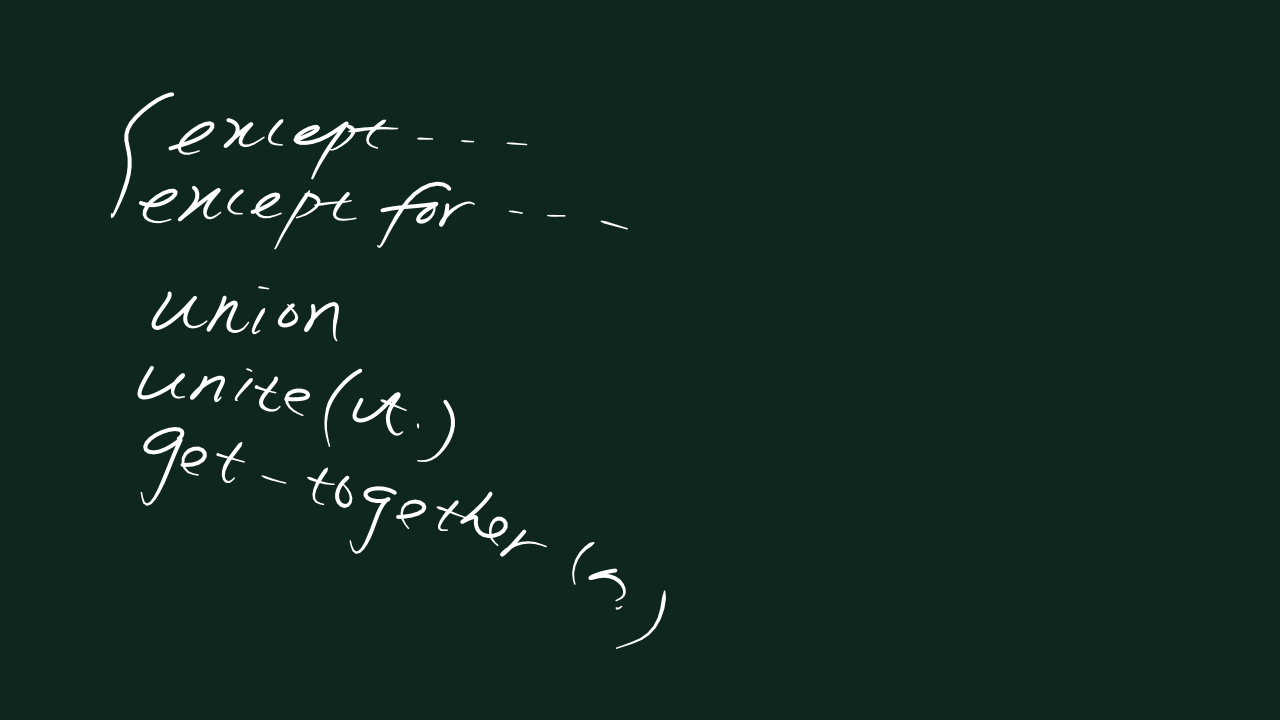 { except - - -
except for - - -
union
unite (vt.)
get-together (n.)